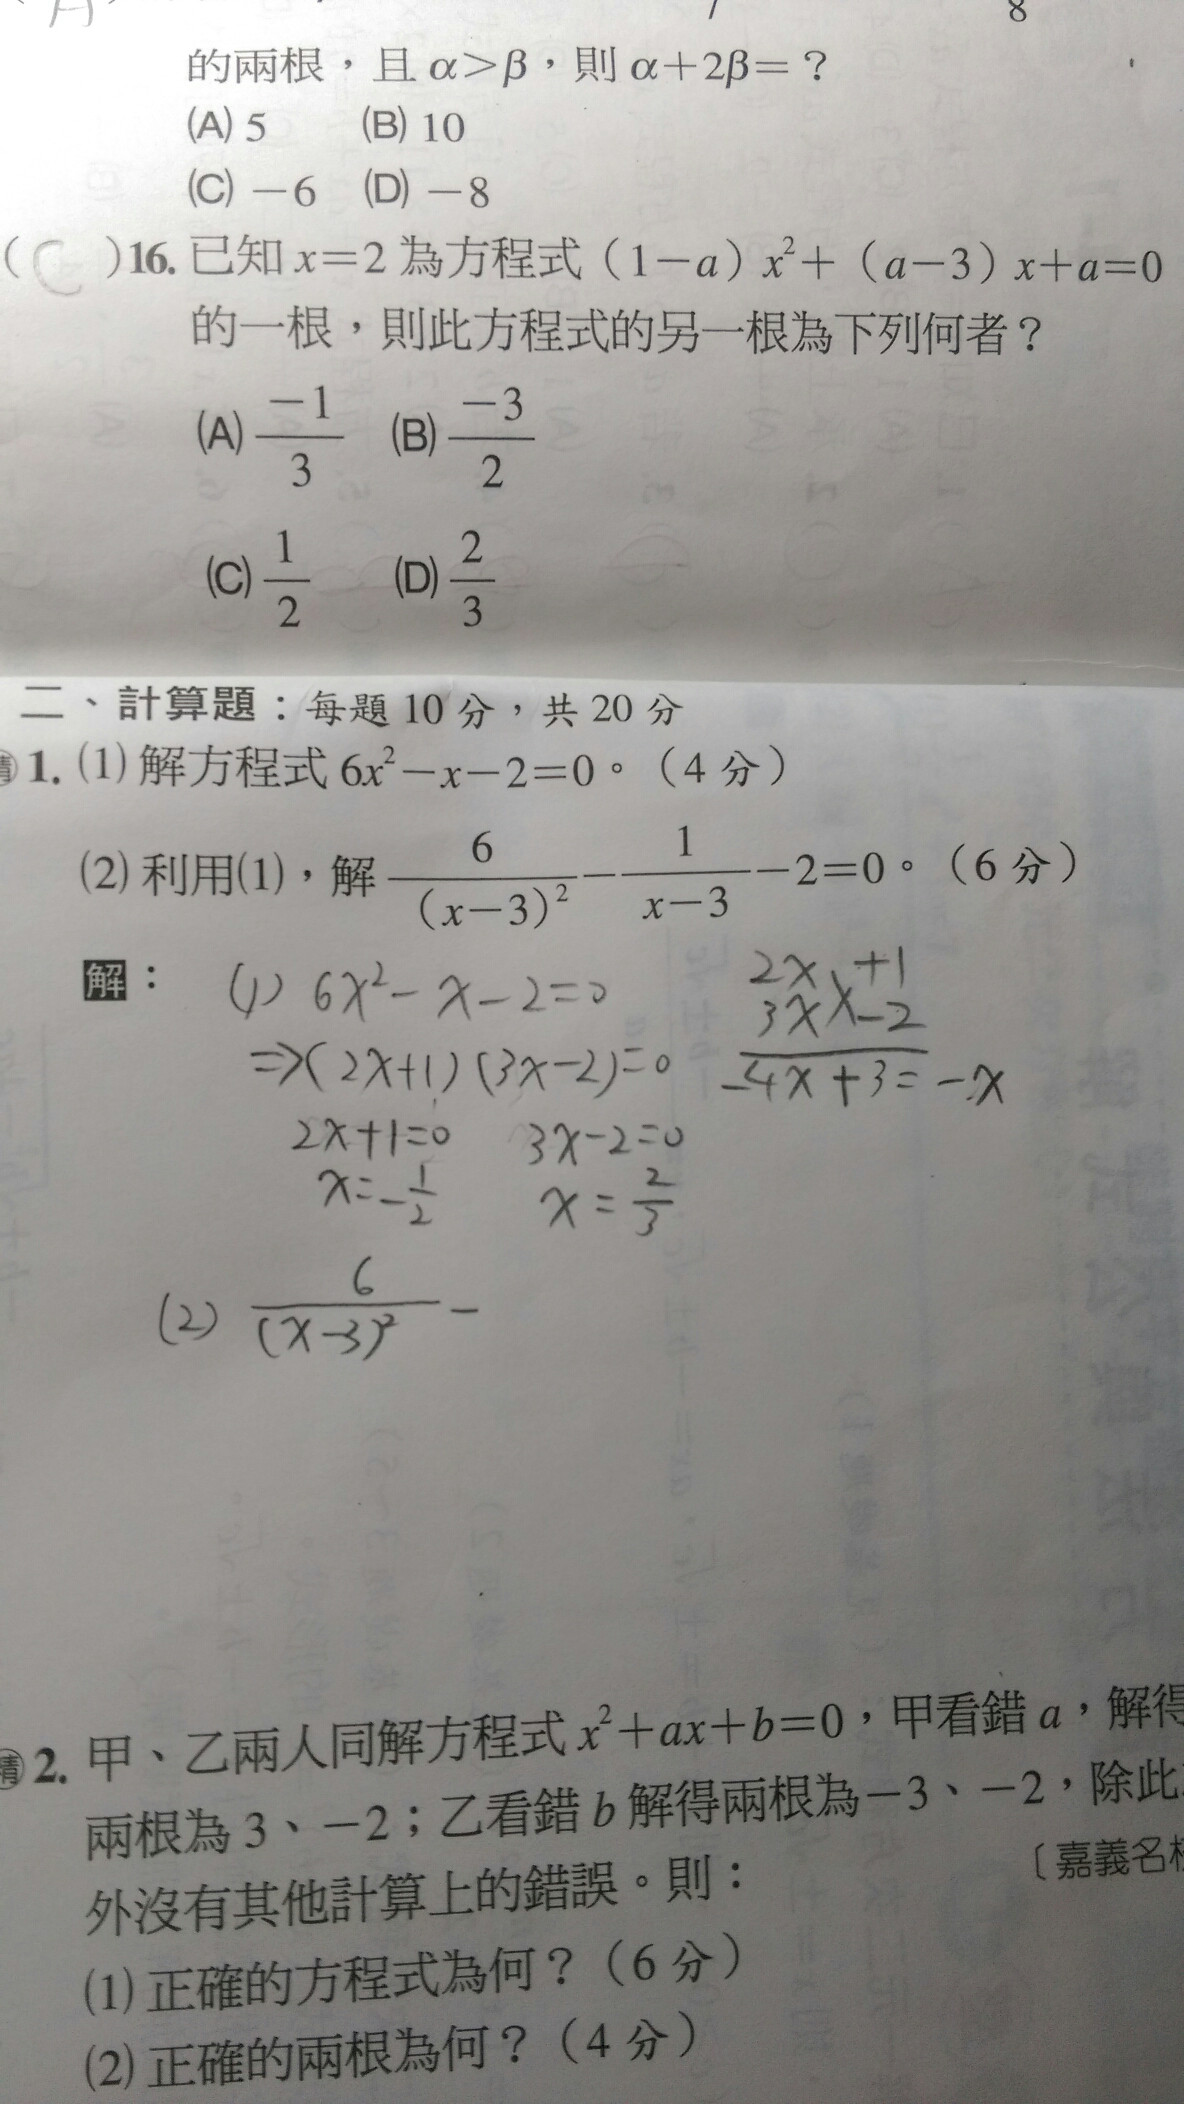 (A)
8
的兩根，且 α＞β，則 α＋2β＝？
(A) 5 (B) 10
(C) －6 (D) －8
( C )16. 已知 x＝2 為方程式（1－a）x²＋（a－3）x＋a＝0
的一根，則此方程式的另一根為下列何者？
(A) －1/3 (B) －3/2
(C) 1/2 (D) 2/3
二、計算題：每題 10 分，共 20 分
1. (1) 解方程式 6x²－x－2＝0。（4 分）
(2) 利用(1)，解 6/（x－3）² － 1/x－3 －2＝0。（6 分）
解： (1) 6x²－x－2=0 2x +1
3x -2
⇒(2x+1)(3x-2)=0 -4x+3=-x
2x+1=0 3x-2=0
x=-1/2 x=2/3
(2) 6/(x-3)² －
2. 甲、乙兩人同解方程式 x²＋ax＋b＝0，甲看錯 a，解得
兩根為 3、－2；乙看錯 b 解得兩根為－3、－2，除此
〔嘉義名
外沒有其他計算上的錯誤。則：
(1) 正確的方程式為何？（6 分）
(2) 正確的兩根為何？（4 分）